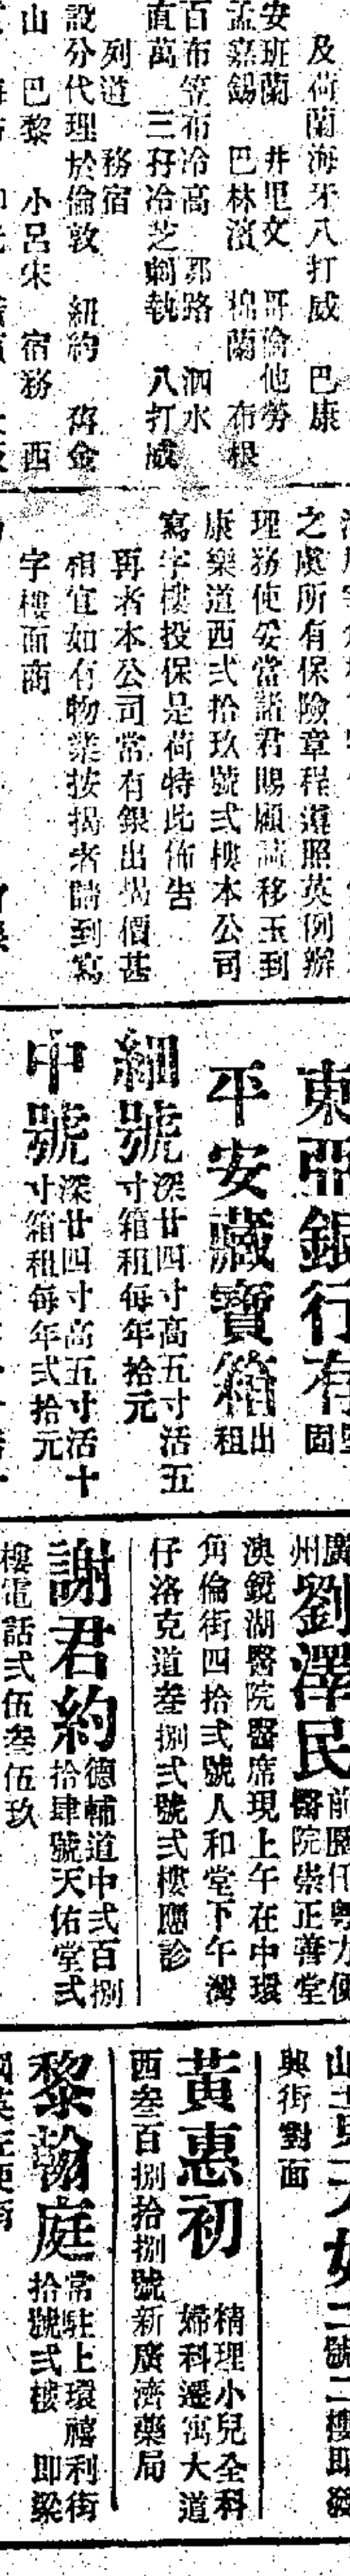 及荷蘭海牙八打威　巴康
安班蘭　井里文　哥倫他勞
孟嘉錫　巴林濱　棉蘭　布根
百布笠布冷高　郭路　泗水
直萬　三孖冷芝剌執　八打威
列道　務宿
設分代理於倫敦　紐約　舊金
山　巴黎　小呂宋　宿務　西
之處所有保險章程遵照英例辦
理務使妥當諸君賜顧請移玉到
康樂道西弍拾玖號弍樓本公司
寫字樓投保是荷特此佈告
再者本公司常有銀出揭價甚
相宜如有物業按揭者請到寫
字樓面商
東亞銀行有
平安藏寶箱出租
細號深廿四寸高五寸活五
寸箱租每年拾元
中號深廿四寸高五寸活十
寸箱租每年弍拾元
廣州劉澤民
醫院崇正善堂
澳鏡湖醫院醫席現上午在中環
角倫街四拾弍號人和堂下午灣
仔洛克道叁捌弍號弍樓應診
謝君約德輔道中弍百捌
拾肆號天佑堂弍
樓電話弍伍叁伍玖
興街對面
黃惠初　精理小兒全科
婦科遷寓大道
西叁百捌拾捌號新廣濟藥局
黎翰庭常駐上環禧利街
拾號弍樓　即梁